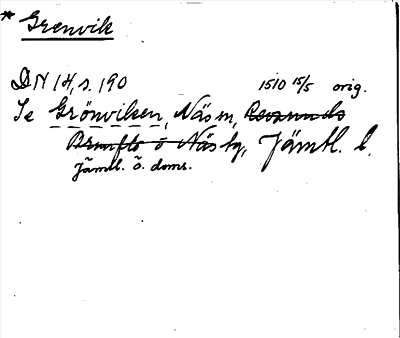 * Grenvik
DN 14, s. 190 1510 15/5 orig.
Se Grönviken, Näs sn,
Brunflo o Näs tg, Jämtl. l.
Jämtl. ö. doms.